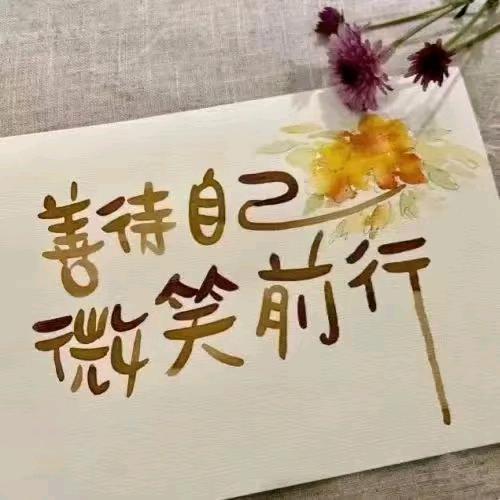 善待自己
微笑前行